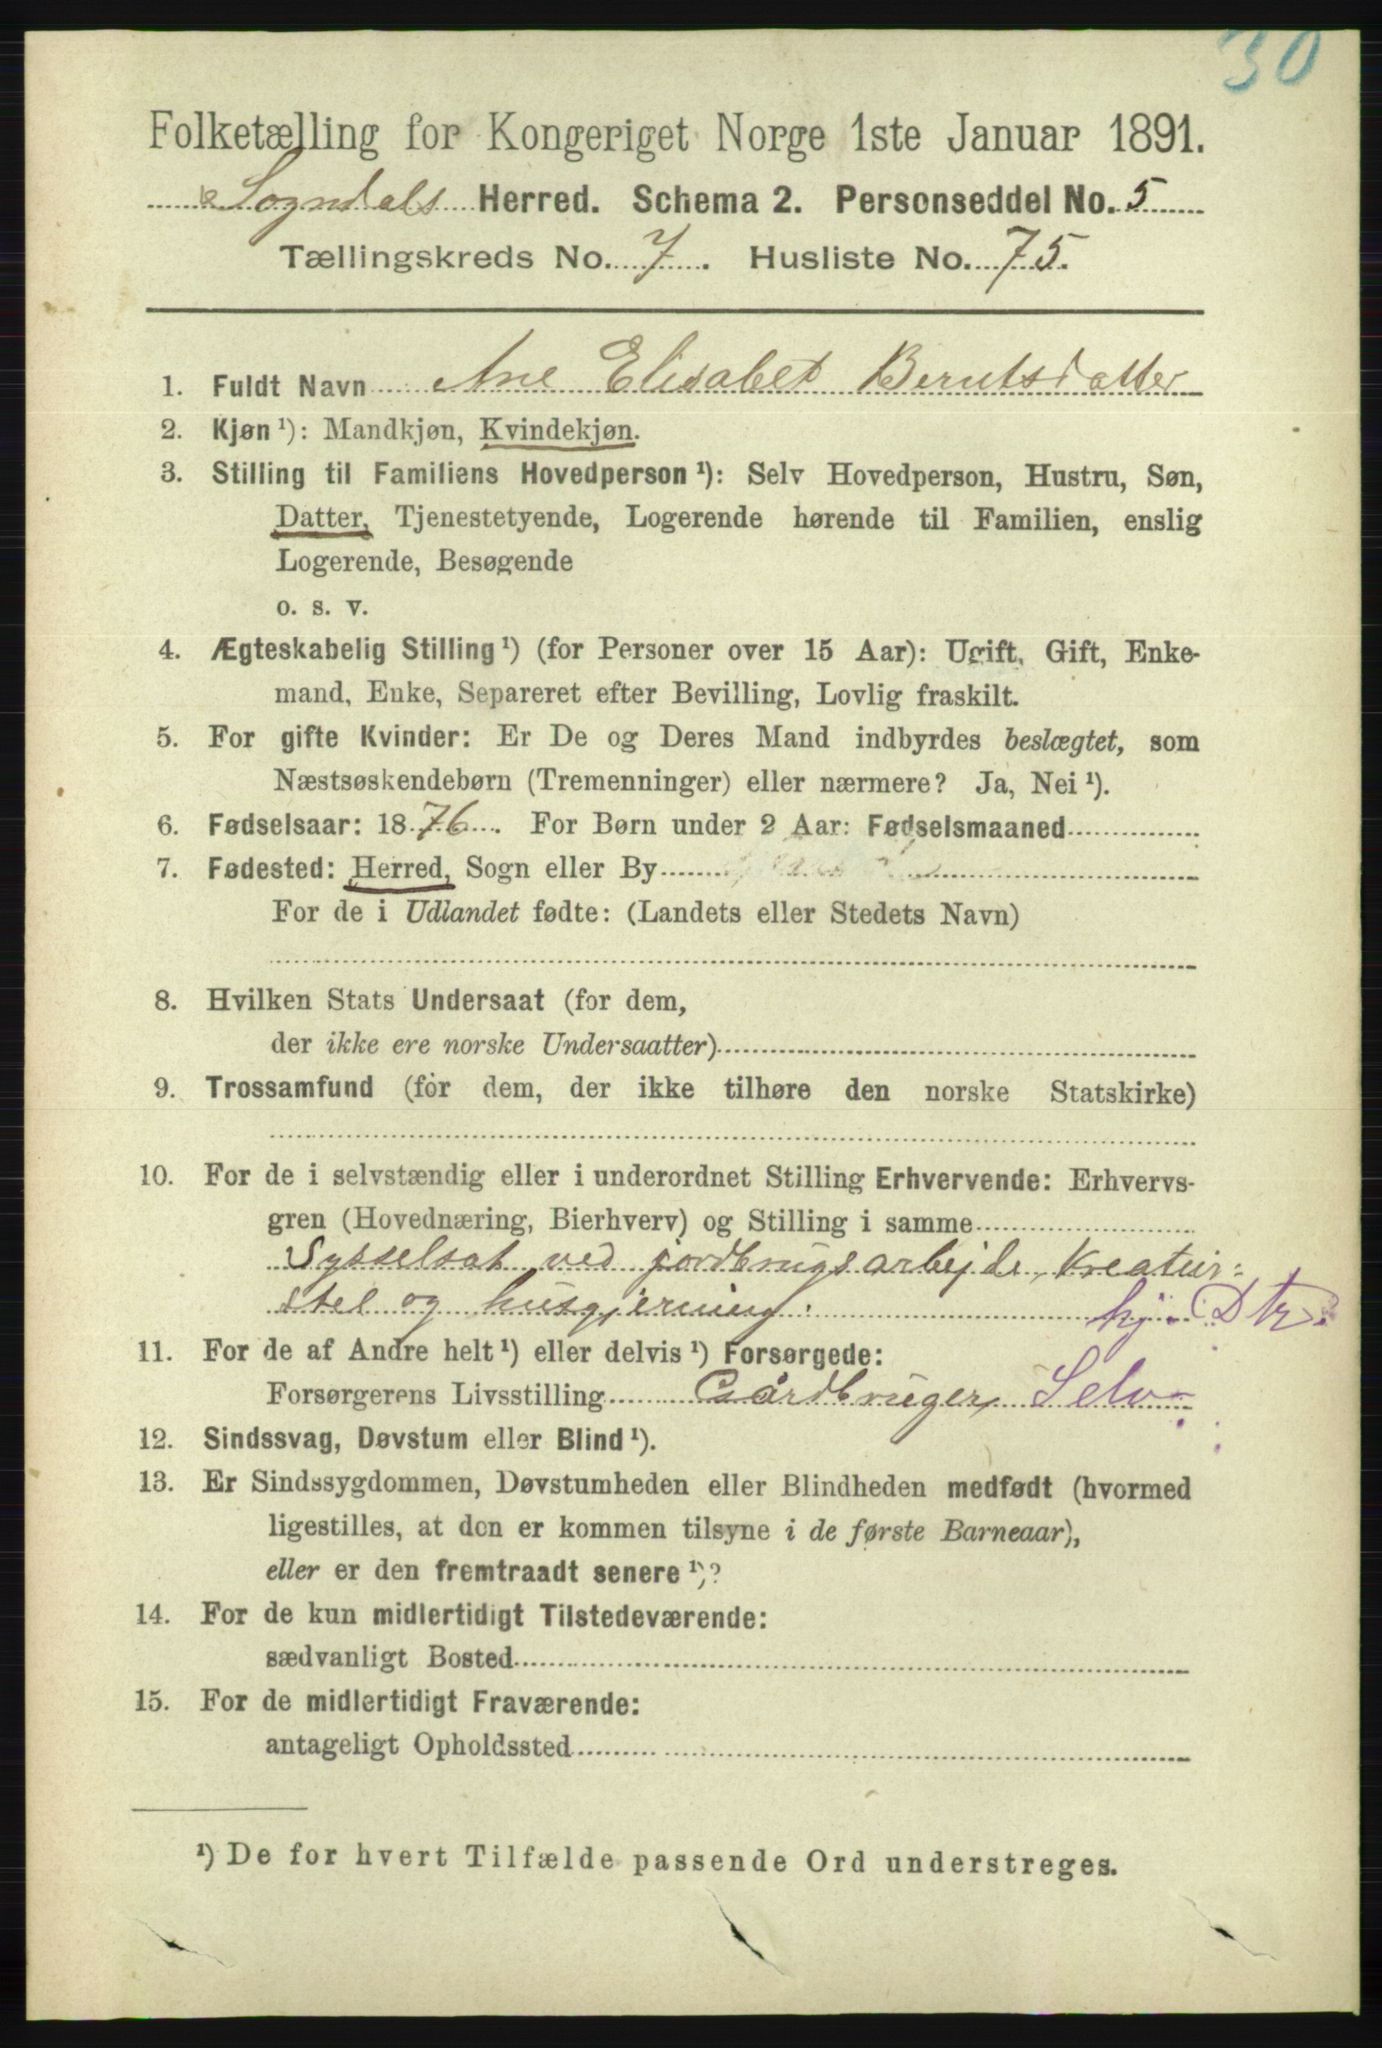 30
Folketælling for Kongeriget Norge 1ste Januar 1891.
Sogndals Herred. Schema 2. Personseddel No. 5
Tællingskreds No. 7. Husliste No. 75.
1. Fuldt Navn Ane Elisabet Berntsdatter
2. Kjøn ¹): Mandkjøn, Kvindekjøn.
3. Stilling til Familiens Hovedperson ¹): Selv Hovedperson, Hustru, Søn,
Datter, Tjenestetyende, Logerende hørende til Familien, enslig
Logerende, Besøgende
o. s. v.
4. Ægteskabelig Stilling ¹) (for Personer over 15 Aar): Ugift, Gift, Enke-
mand, Enke, Separeret efter Bevilling, Lovlig fraskilt.
5. For gifte Kvinder: Er De og Deres Mand indbyrdes beslægtet, som
Næstsøskendebørn (Tremenninger) eller nærmere? Ja, Nei ¹).
6. Fødselsaar: 1876. For Børn under 2 Aar: Fødselsmaaned
7. Fødested: Herred, Sogn eller By
For de i Udlandet fødte: (Landets eller Stedets Navn)
8. Hvilken Stats Undersaat (for dem,
der ikke ere norske Undersaatter)
9. Trossamfund (for dem, der ikke tilhøre den norske Statskirke)
10. For de i selvstændig eller i underordnet Stilling Erhvervende: Erhvervs-
gren (Hovednæring, Bierhverv) og Stilling i samme
Sysselsat ved jordbrugsarbejde, kreatur-
stel og husgjerning. hj. Dtr.
11. For de af Andre helt ¹) eller delvis ¹) Forsørgede:
Forsørgerens Livsstilling Gårdbruger, Selv
12. Sindssvag, Døvstum eller Blind ¹).
13. Er Sindssygdommen, Døvstumheden eller Blindheden medfødt (hvormed
ligestilles, at den er kommen tilsyne i de første Barneaar),
eller er den fremtraadt senere ¹)?
14. For de kun midlertidigt Tilstedeværende:
sædvanligt Bosted
15. For de midlertidigt Fraværende:
antageligt Opholdssted
¹) De for hvert Tilfælde passende Ord understreges.